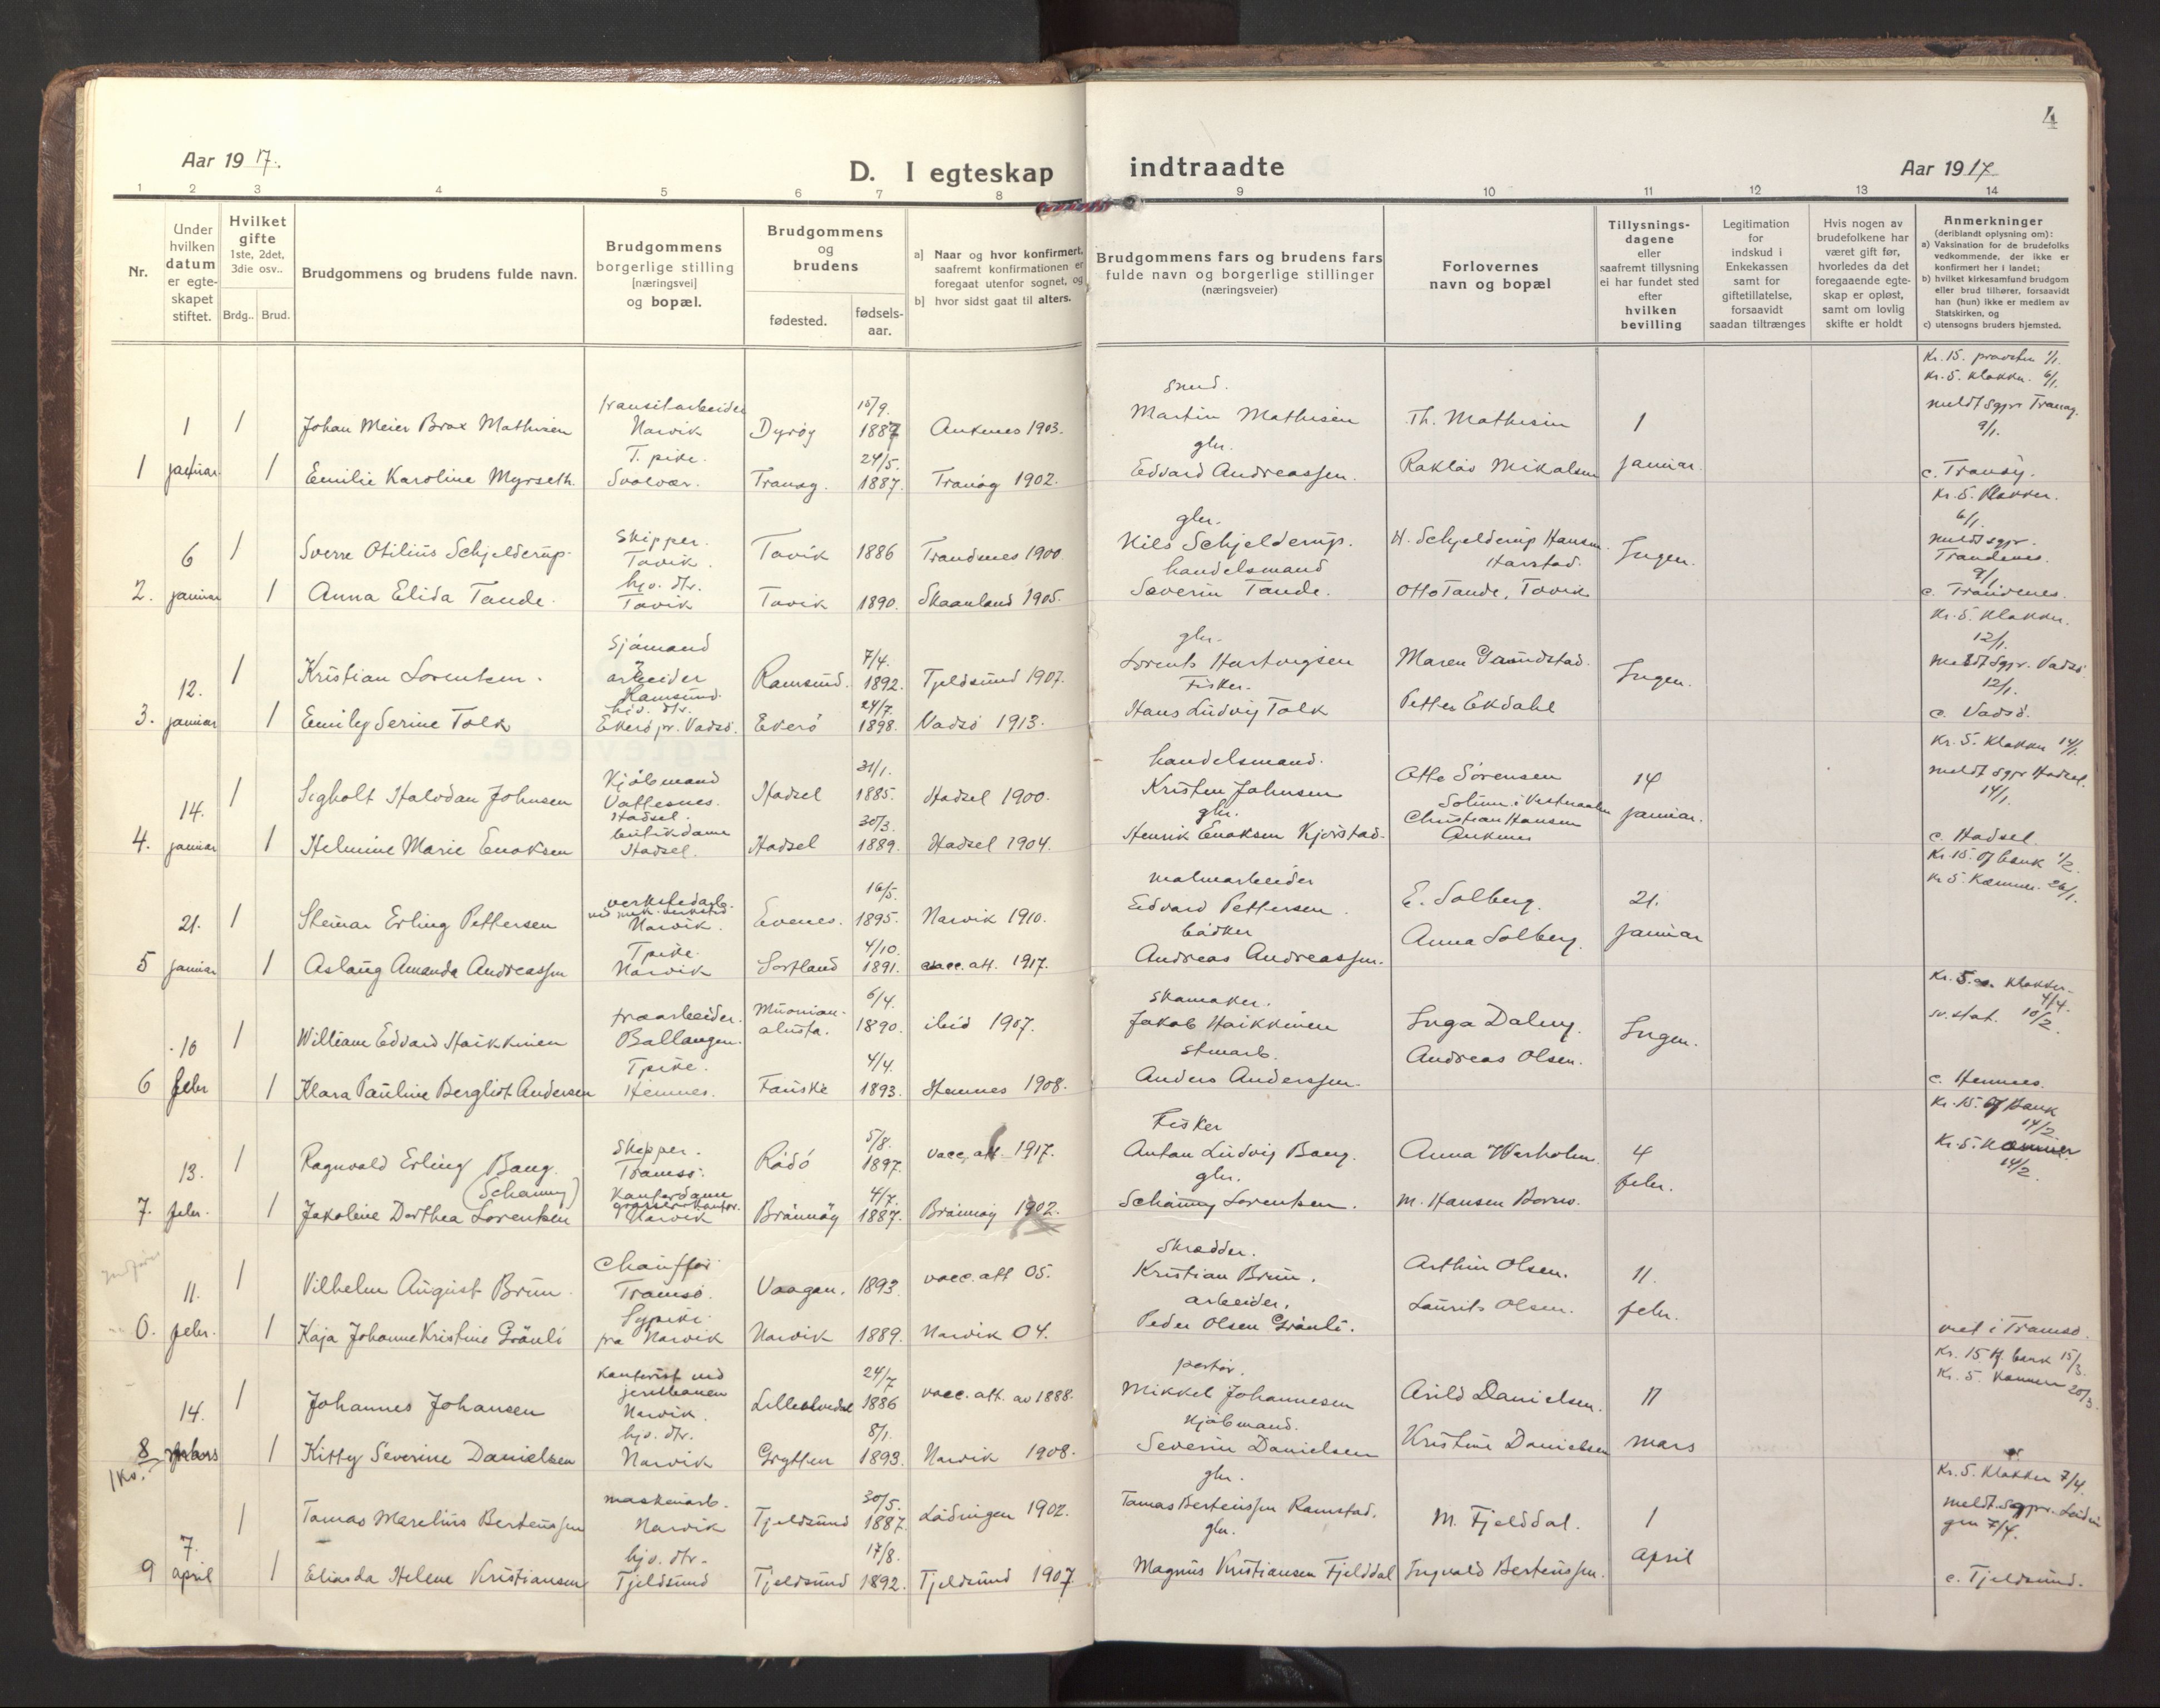 4
Aar 1917.
D. I egteskap indtraadte
Aar 1917
1 2 3 4 5 6 7 8 9 10 11 12 13 14
Nr.
Under hvilken datum er egte-skapet stiftet.
Hvilket gifte 1ste, 2det, 3die osv..
Brdg.. Brud.
Brudgommens og brudens fulde navn.
Brudgommens borgerlige stilling [næringsvei] og bopæl.
Brudgommens og brudens
fødested.
fødsels-aar.
a] Naar og hvor konfirmert, saafremt konfirmationen er foregaat utenfor sognet, og
b] hvor sidst gaat til alters.
Brudgommens fars og brudens fars fulde navn og borgerlige stillinger (næringsveier)
Forlovernes navn og bopæl
Tillysnings-dagene eller saafremt tillysning ei har fundet sted efter hvilken bevilling
Legitimation for indskud i Enkekassen samt for giftetillatelse, forsaavidt saadan tiltrænges
Hvis nogen av brudefolkene har været gift før, hvorledes da det foregaaende egte-skap er opløst, samt om lovlig skifte er holdt
Anmerkninger (deriblandt oplysning om):
a) Vaksination for de brudefolks vedkommende, der ikke er konfirmert her i landet;
b) hvilket kirkesamfund brudgom eller brud tilhører, forsaavidt han (hun) ikke er medlem av Statskirken, og
c) utensogns bruders hjemsted.
1 1 Johan Meier Brox Mathisen transitarbeider Narvik Dyrøy 15/9. 1887 Ankenes 1903. Smed. Martin Mathisen Th. Mathisen 1 Kr. 15. 1/1. Kr. 5. Klokker. 6/1. meldt sgpr Tranøy. 9/1.
1 januar 1 Emilie Karoline Myrseth. T. pike. Svolvær. Tranøy. 24/5. 1887. Tranøy 1902. gbr. Edvard Andreassen. Mikalsen januar. c. Tranøy.
6 1 Sverre Otilius Schjelderup. Skipper. Tovik. Tovik 1886 Trondenes 1900. gbr. Nils Schjelderup. H. Schjelderup Hansen. Harstad. Ingen. Kr. 5. Klokker. 6/1. meldt sgpr. Trondenes. 9/1.
2. januar 1 Anna Elida Tande. hjv. dtr. Tovik Tovik 1890. Skaanland 1905. handelsmand Severin Tande. Otto Tande, Tovik c. Trondenes.
12. 1 Kristian Lorentsen. Sjömand arbeider Ramsund. Ramsund. 7/4. 1892. Tjeldsund 1907. gbr. Lorents Hartvigsen Maren Ingen. Kr. 5. Klokker. 12/1. meldt sgpr. Vadsö. 12/1.
3. januar 1 Emily Serine Tolk hjv. dtr. Ekerö pr. Vadsö. Ekerö 24/7. 1898. Vadsö 1913. Fisker. Hans Ludvig Tolk Petter Ekdahl c. Vadsö.
14. 1 Sigholt Halvdan Johnsen Kjöbmand Hadsel. Hadsel 31/1. 1885. Hadsel 1900. handelsmand. Kristen Johnsen Otto Sörensen 14 Kr. 5. Klokker 14/1. meldt sgpr Hadsel. 14/1.
4. januar 1 Helmine Marie Enoksen butikdame Hadsel. Hadsel 30/3. 1889. Hadsel 1904. gbr. Henrik Enoksen Kjörstad. Christian Hansen Ankenes januar. c. Hadsel.
21. 1 Steinar Erling Pettersen verkstedarb. ved mek. verksted Narvik. Evenes. 16/5. 1895. Narvik 1910. malmarbeider Edvard Pettersen. E. Solberg. 21. Kr. 15. Of bank 1/2. Kr 5. Kæmner. 26/1.
5 januar 1 Aslaug Amanda Andreassen T pike. Narvik Sortland 4/10. 1891. vacc. att. 1917. bödker Andreas Andreassen. Anna Solberg. januar
10 1 William Edvard Haikkinen Ballangen. 6/4. 1890. ibid 1907. Skomaker. Jakob Haikkinen Inga Ingen. Kr. 5. Klokker. 4/4. 10/2.
6 febr 1 Klara Pauline Bergliot Andersen T pike. Hemnes. Fauske 4/4. 1893. Hemnes 1908. Anders Anderssen. Andreas Olsen. c. Hemnes.
13. 1 Ragnvald Erling Bang. Skipper. Tromsö. Rödö 5/8. 1897. vacc. att. 1917. Fisker Anton Ludvig Bang. Anna Warholm. 4 Kr. 15. Of Bank 14/2. Kr. 5. Kæmner 14/2.
7. febr. 1 Jakoline Dorthea (Schanny) Lorentsen Kontordame Narvik Brönnöy 4/7. 1887. Brönnöy 1902. gbr. Schanny Lorentsen. M. Hansen febr.
11. 1 Vilhelm August Brun. Chauffør Tromsö. Vaagan. 1893. vacc. att 05. Skrædder. Kristian Brun. Arthur Olsen. 11.
0. febr. 1 Kaja Johanne Kristine Grönli Sypike. fra Narvik Narvik 1889. Narvik 04. arbeider. Peder Olsen Grönli. Laurits Olsen. febr. viet i Tromsö.
14. 1 Johannes Johansen Kontorist ved jernbanen Narvik. Lilleelvedal 24/7 1886 vacc. att. av 1888. Mikkel Johannesen Arild Danielsen. 11 Kr. 15 Of. bank 15/3. Kr. 5. Kæmner 20/3.
8 mars 1 Kitty Severine Danielsen hjv. dtr. Narvik Grytten 8/1. 1893. Narvik 1908. Kjöbmand. Severin Danielsen Kristine Danielsen mars
1 Tomas Marelius Bertenssen maskinarb. Narvik Tjeldsund 30/5. 1887. Lödingen 1902. gbr. Tomas Bertenssen Ramstad. M. Fjelddal. 1 Kr. 5. Klokker 7/4. meldt sgpr. Lödingen 7/4.
9 7. april 1 Helene Kristiansen hjv. dtr. Tjeldsund Tjeldsund 17/8. 1892. Tjeldsund 1907 gbr. Magnus Kristiansen Fjelddal Ingvald Bertenssen. april c. Tjeldsund.